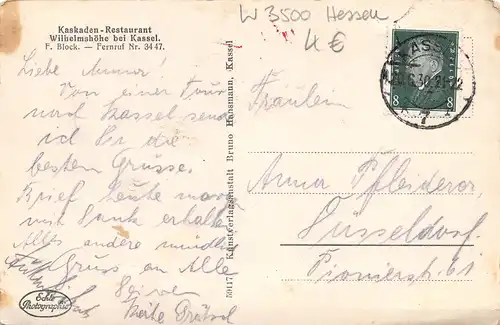 Kaskaden-Restaurant
Wilhelmshöhe bei Kassel.
F. Block. — Fernruf Nr. 3447.
W 3500 Hessen
4 €
Liebe Anna!
Von einer Tour
nach Kassel sende
ich Dir die
besten Grüsse.
Brief heute morgen
mit Dank erhalten
Alles andere mündlich
Gruss an Alle
Käthe
Echte
Photographie
59117 Kunstverlagsanstalt Bruno Hansmann, Kassel
KASSEL
7
8 8
Fräulein
Anna Pfleiderer,
Düsseldorf.
Pionierstr. 61